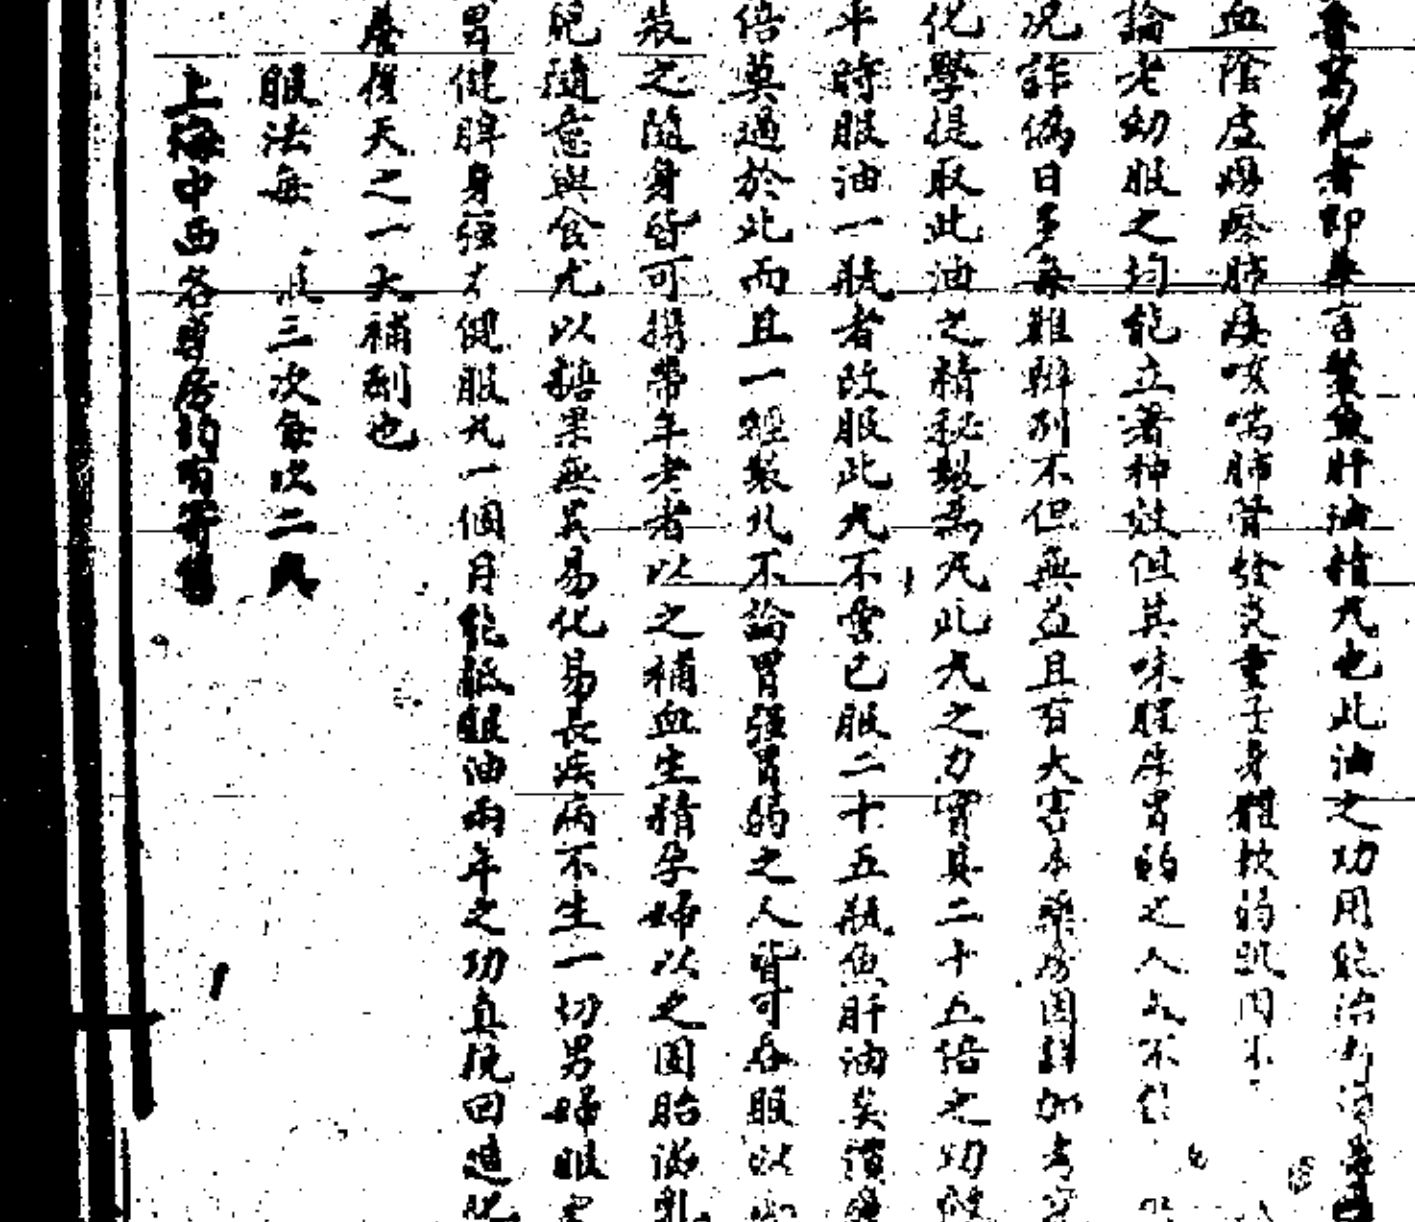 兒者即華言鰵魚肝油精丸也此油之功用能治
血陰虛癆瘵肺痿咳喘肺管發炎童子身體軟弱肌肉不
論老幼服之均能立著神效但其味腥厚胃弱之人
況詐偽日多每難辨別不但無益且有大害本藥房因詳加考
化學提取此油之精秘製為丸此丸之力實具二十五倍之功
年時服油一瓶者改服此丸不啻已服二十五瓶魚肝油矣價
倍莫過於此而且一經製丸不論胃強胃弱之人皆可吞服以
裝之隨身皆可攜帶年老者以之補血生精孕婦以之固胎滋乳
兒隨意與食尤以糖果無異易化易長疾病不生一切男婦服
胃健脾身強 健服丸一個月能抵服油兩年之功真挽回造化
復天之一大補劑也
服法每 三次每次二丸
上海中西各藥房均有寄售